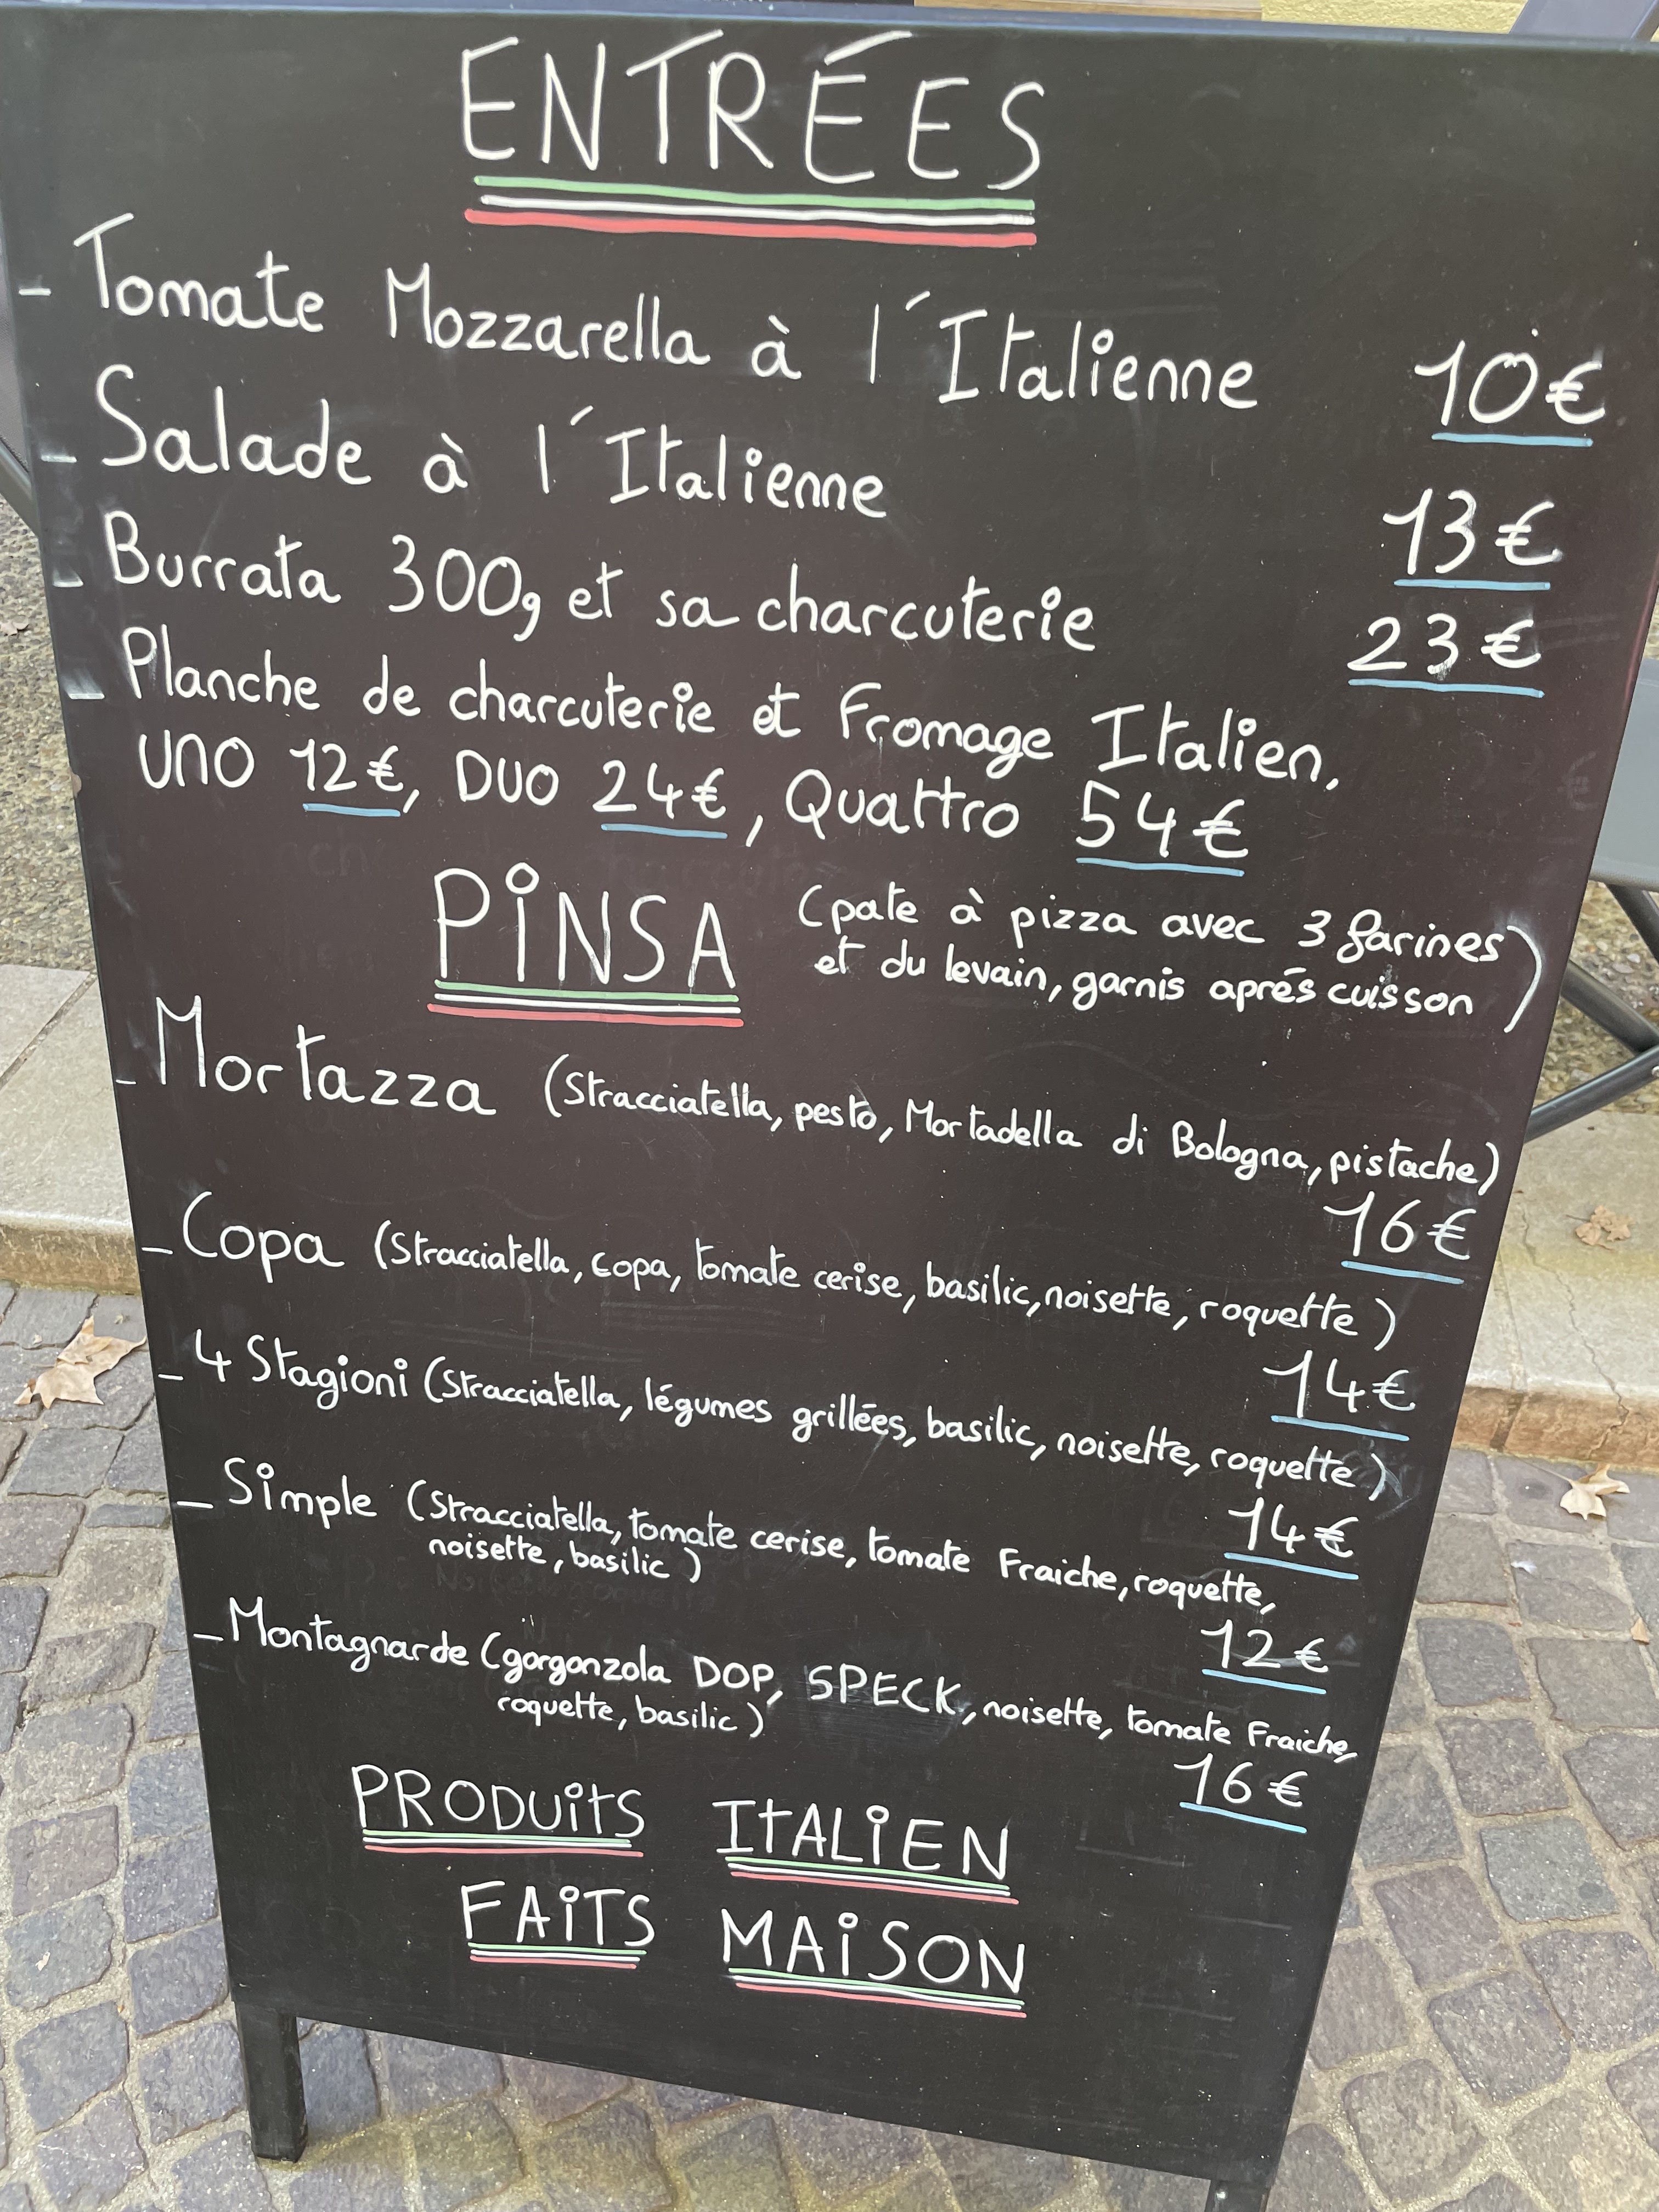 ENTRÉES
- Tomate Mozzarella à l'Italienne 10€
- Salade à l'Italienne 13€
- Burrata 300g et sa charcuterie 23€
- Planche de charcuterie et Fromage Italien,
UNO 12€, DUO 24€, Quattro 54€
PiNSA (pate à pizza avec 3 farines
et du levain, garnis aprés cuisson)
- Mortazza (Stracciatella, pesto, Mortadella di Bologna, pistache)
16€
- Copa (Stracciatella, copa, tomate cerise, basilic, noisette, roquette)
14€
- 4 Stagioni (Stracciatella, légumes grillées, basilic, noisette, roquette)
14€
- Simple (Stracciatella, tomate cerise, tomate Fraiche, roquette,
noisette, basilic)
12€
- Montagnarde (gorgonzola DOP, SPECK, noisette, tomate Fraiche,
roquette, basilic)
16€
PRODUitS ItALiEN
FAiTS MAiSON